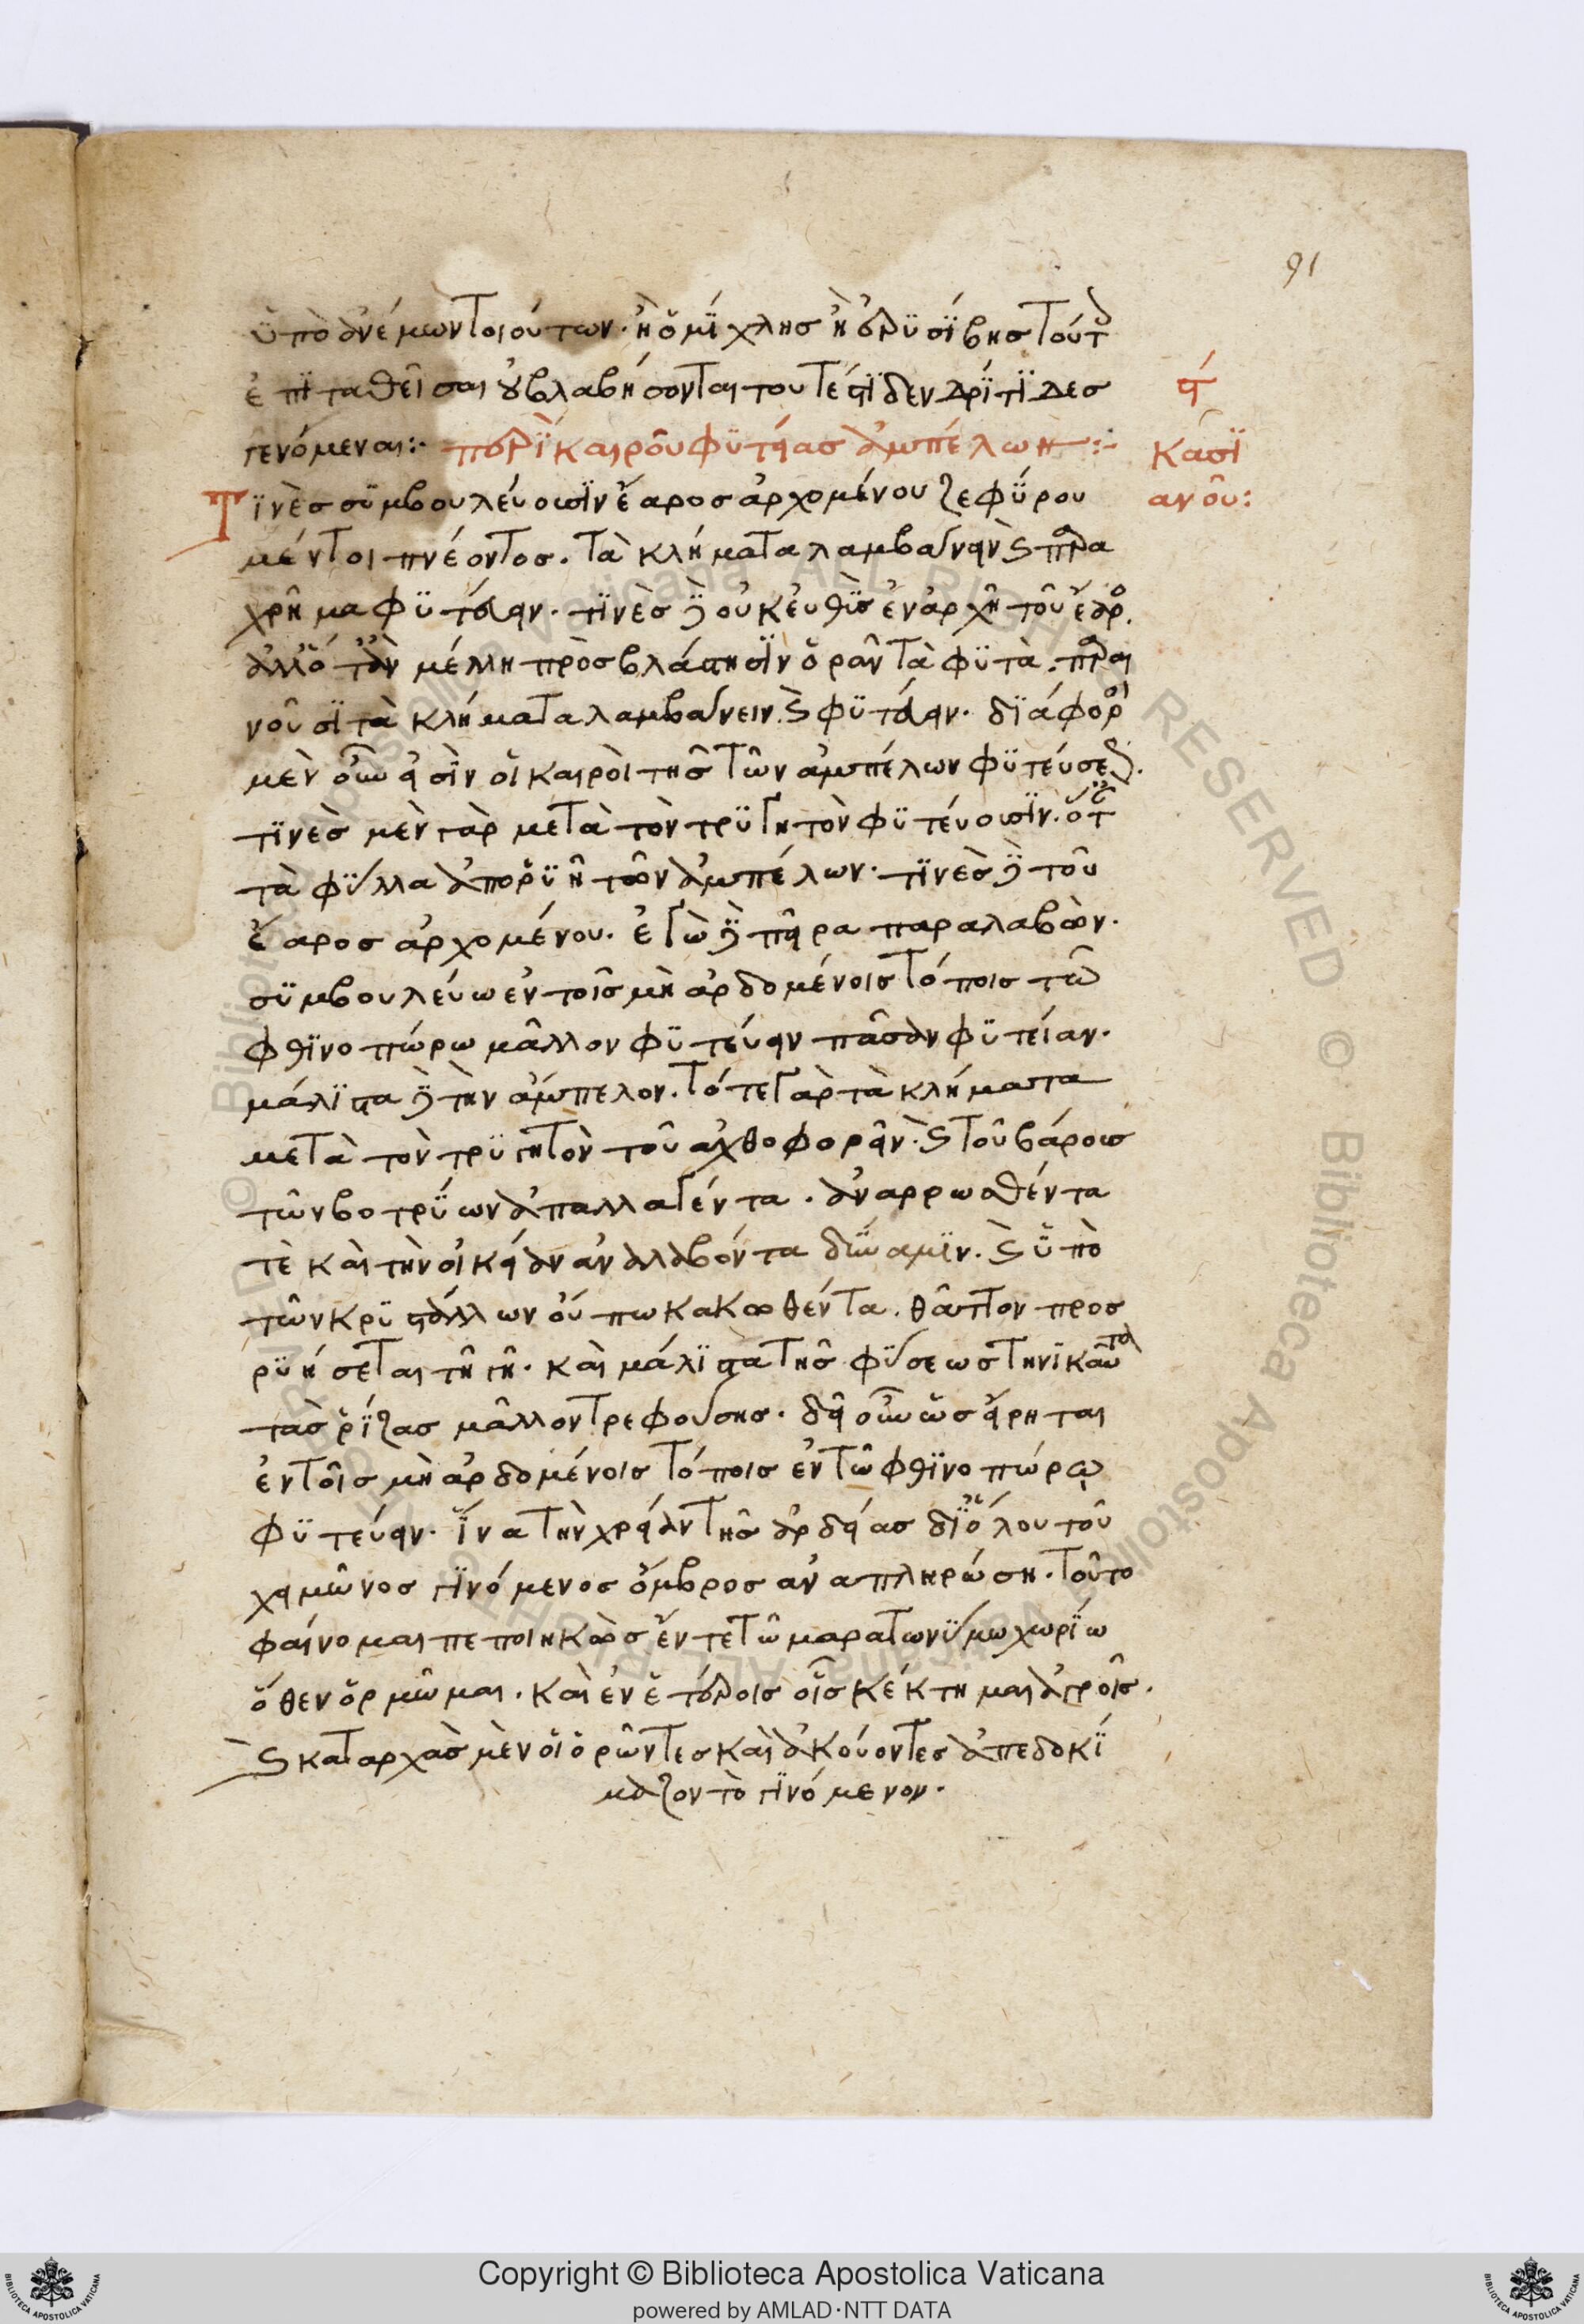 91
ὑπὸ ἀνέμων τοιούτων. ἢ ὁμίχλης ἢ ἐρυσίβης τούτων
ἐπιταθεῖσαι οὐ βλαβήσονται τουτέστι δενδρίτιδες
γενόμεναι:· περὶ καιροῦ φυτείας ἀμπέλων:·
ϛ´
Κασι
ανοῦ:
Τινὲς συμβουλεύουσιν ἔαρος ἀρχομένου ζεφύρου
μέντοι πνέοντος. τὰ κλήματα λαμβάνειν καὶ παρα
χρῆμα φυτεύειν. τινὲς δὲ οὐκ εὐθὺς ἐν ἀρχῇ τοῦ ἔαρος.
ἀλλ' ὅταν μέλλῃ πρὸς βλάστησιν ὁρᾶν τὰ φυτὰ. παραι
νοῦσι τὰ κλήματα λαμβάνειν. καὶ φυτεύειν. διάφοροι
μὲν οὖν εἰσὶν οἱ καιροὶ τῆς τῶν ἀμπέλων φυτεύσεως.
τινὲς μὲν γὰρ μετὰ τὸν τρυγητὸν φυτεύουσιν. ὅτε
τὰ φύλλα ἀπορρυῇ τῶν ἀμπέλων. τινὲς δὲ τοῦ
ἔαρος ἀρχομένου. ἐγὼ δὲ πεῖρα παραλαβὼν.
συμβουλεύω ἐν τοῖς μὴ ἀρδομένοις τόποις τῶ
φθινοπώρω μᾶλλον φυτεύειν πᾶσαν φυτείαν.
μάλιστα δὲ τὴν ἄμπελον. τότε γὰρ τὰ κλήματα
μετὰ τὸν τρυγητὸν τοῦ ἀχθοφορεῖν. καὶ τοῦ βάρους
τῶν βοτρύων ἀπαλλαγέντα. ἀναρρωσθέντα
τὲ καὶ τὴν οἰκείαν ἀναλαβόντα δύναμιν. καὶ ὑπὸ
τῶν κρυστάλλων οὔπω κακωθέντα. θᾶττον προσ
ρυήσεται τῇ γῇ. καὶ μάλιστα τῆς φύσεως τηνικαῦτα
τὰς ῥίζας μᾶλλον τρεφούσης. δεῖ οὖν ὡς εἴρηται
ἐν τοῖς μὴ ἀρδομένοις τόποις ἐν τῶ φθινοπώρῳ
φυτεύειν. ἵνα τὴν χρείαν τῆς ἀρδείας δι' ὅλου τοῦ
χειμῶνος γινόμενος ὄμβρος ἀναπληρώση. τοῦτο
φαίνομαι πεποιηκὼς ἔν τε τῶ μαρατωνύμω χωρίω
ὅθεν ὁρμῶμαι. καὶ ἐν ἑτέροις οἷς κέκτημαι ἀγροῖς.
καὶ καταρχὰς μὲν οἱ ὁρῶντες καὶ ἀκούοντες ἀπεδοκί
μαζον τὸ γινόμενον.
Copyright © Biblioteca Apostolica Vaticana
powered by AMLAD·NTT DATA